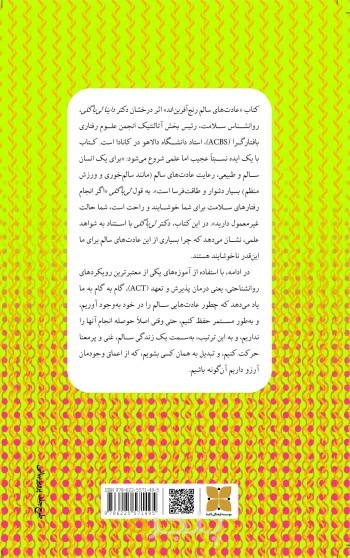 کتاب «عادت‌های سالم رنج‌آفرین‌اند» اثر درخشان دکتر داینا لی‌باگلی،
روانشناس سلامت، رئیس بخش آتلانتیک انجمن علوم رفتاری
بافتارگرا (ACBS)، استاد دانشگاه دالاهو در کانادا است. کتاب
با یک ایده نسبتاً عجیب اما علمی شروع می‌شود: «برای یک انسان
سالم و طبیعی، رعایت عادت‌های سالم (مانند سالم‌خوری و ورزش
منظم) بسیار دشوار و طاقت‌فرسا است». به قول لی‌باگلی «اگر انجام
رفتارهای سلامت برای شما خوشایند و راحت است، شما حالت
غیرمعمول دارید». در این کتاب، دکتر لی‌باگلی با استناد به شواهد
علمی، نشان می‌دهد که چرا بسیاری از این عادت‌های سالم برای ما
این‌قدر ناخوشایند هستند.
در ادامه، با استفاده از آموزه‌های یکی از معتبرترین رویکردهای
روانشناختی، یعنی درمان پذیرش و تعهد (ACT)، گام به گام به ما
یاد می‌دهد که چطور عادت‌هایی سالم را در خود به‌وجود آوریم،
و به‌طور مستمر حفظ کنیم، حتی وقتی اصلاً حوصله انجام آنها را
نداریم، و به این ترتیب، به‌سمت یک زندگی سالم، غنی و پرمعنا
حرکت کنیم، و تبدیل به همان کسی بشویم، که از اعماق وجودمان
آرزو داریم آن‌گونه باشیم.